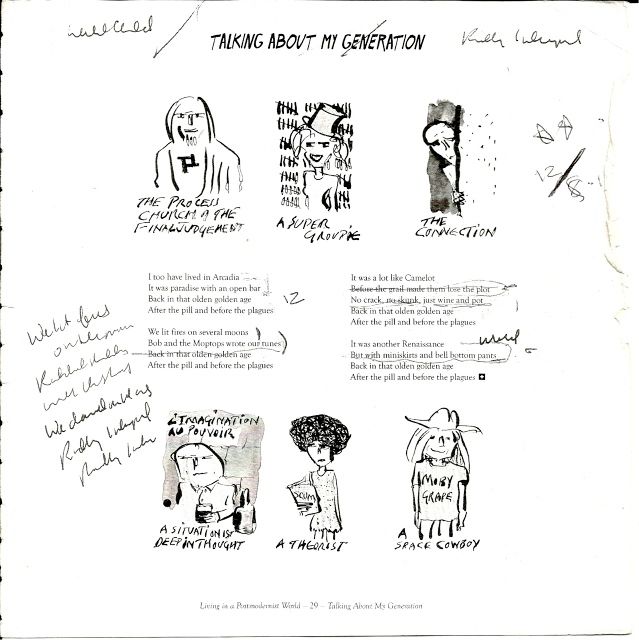 TALKING ABOUT MY GENERATION
THE PROCESS
CHURCH OF THE
FINAL JUDGEMENT
A SUPER
GROUPIE
THE
CONNECTION
12/8
I too have lived in Arcadia
It was paradise with an open bar
Back in that olden golden age
After the pill and before the plagues
12
We lit fires on several moons
Bob and the Moptops wrote our tunes
Back in that olden golden age
After the pill and before the plagues
It was a lot like Camelot
Before the grail made them lose the plot
No crack, no skunk, just wine and pot
Back in that olden golden age
After the pill and before the plagues
It was another Renaissance
But with miniskirts and bell bottom pants
Back in that olden golden age
After the pill and before the plagues
We lit fires
L'IMAGINATION
AU POUVOIR
A SITUATIONIST
DEEP IN THOUGHT
SCUM
A THEORIST
MOBY
GRAPE
A
SPACE COWBOY
Living in a Postmodernist World – 29 – Talking About My Generation